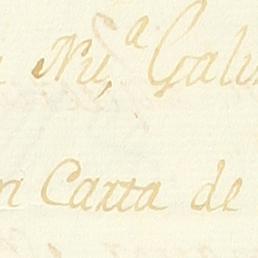 Nu,ª Gali
n Carta de